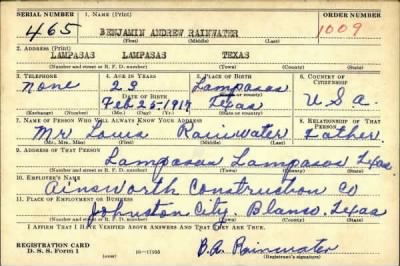 SERIAL NUMBER 1. NAME (Print) ORDER NUMBER
465 BENJAMIN ANDREW RAINWATER 1009
(First) (Middle) (Last)
2. ADDRESS (Print)
LAMPASAS LAMPASAS TEXAS
(Number and street or R. F. D. number) (Town) (County) (State)
3. TELEPHONE 4. AGE IN YEARS 5. PLACE OF BIRTH 6. COUNTRY OF CITIZENSHIP
None 23 Lampasas
DATE OF BIRTH
Feb 25-1917 Texas U.S.A.
(Exchange) (Number) (Mo.) (Day) (Yr.) (State or country)
7. NAME OF PERSON WHO WILL ALWAYS KNOW YOUR ADDRESS 8. RELATIONSHIP OF THAT PERSON
Mr Louis Rainwater Father
(Mr., Mrs., Miss) (First) (Middle) (Last)
9. ADDRESS OF THAT PERSON
Lampasas Lampasas Texas
(Number and street or R. F. D. number) (Town) (County) (State)
10. EMPLOYER'S NAME
Ainsworth Construction Co
11. PLACE OF EMPLOYMENT OR BUSINESS
Johnston City, Blanco, Texas
(Number and street or R. F. D. number) (Town) (County) (State)
I AFFIRM THAT I HAVE VERIFIED ABOVE ANSWERS AND THAT THEY ARE TRUE.
REGISTRATION CARD
D. S. S. Form 1 (over) B.A. Rainwater
(Registrant's signature)